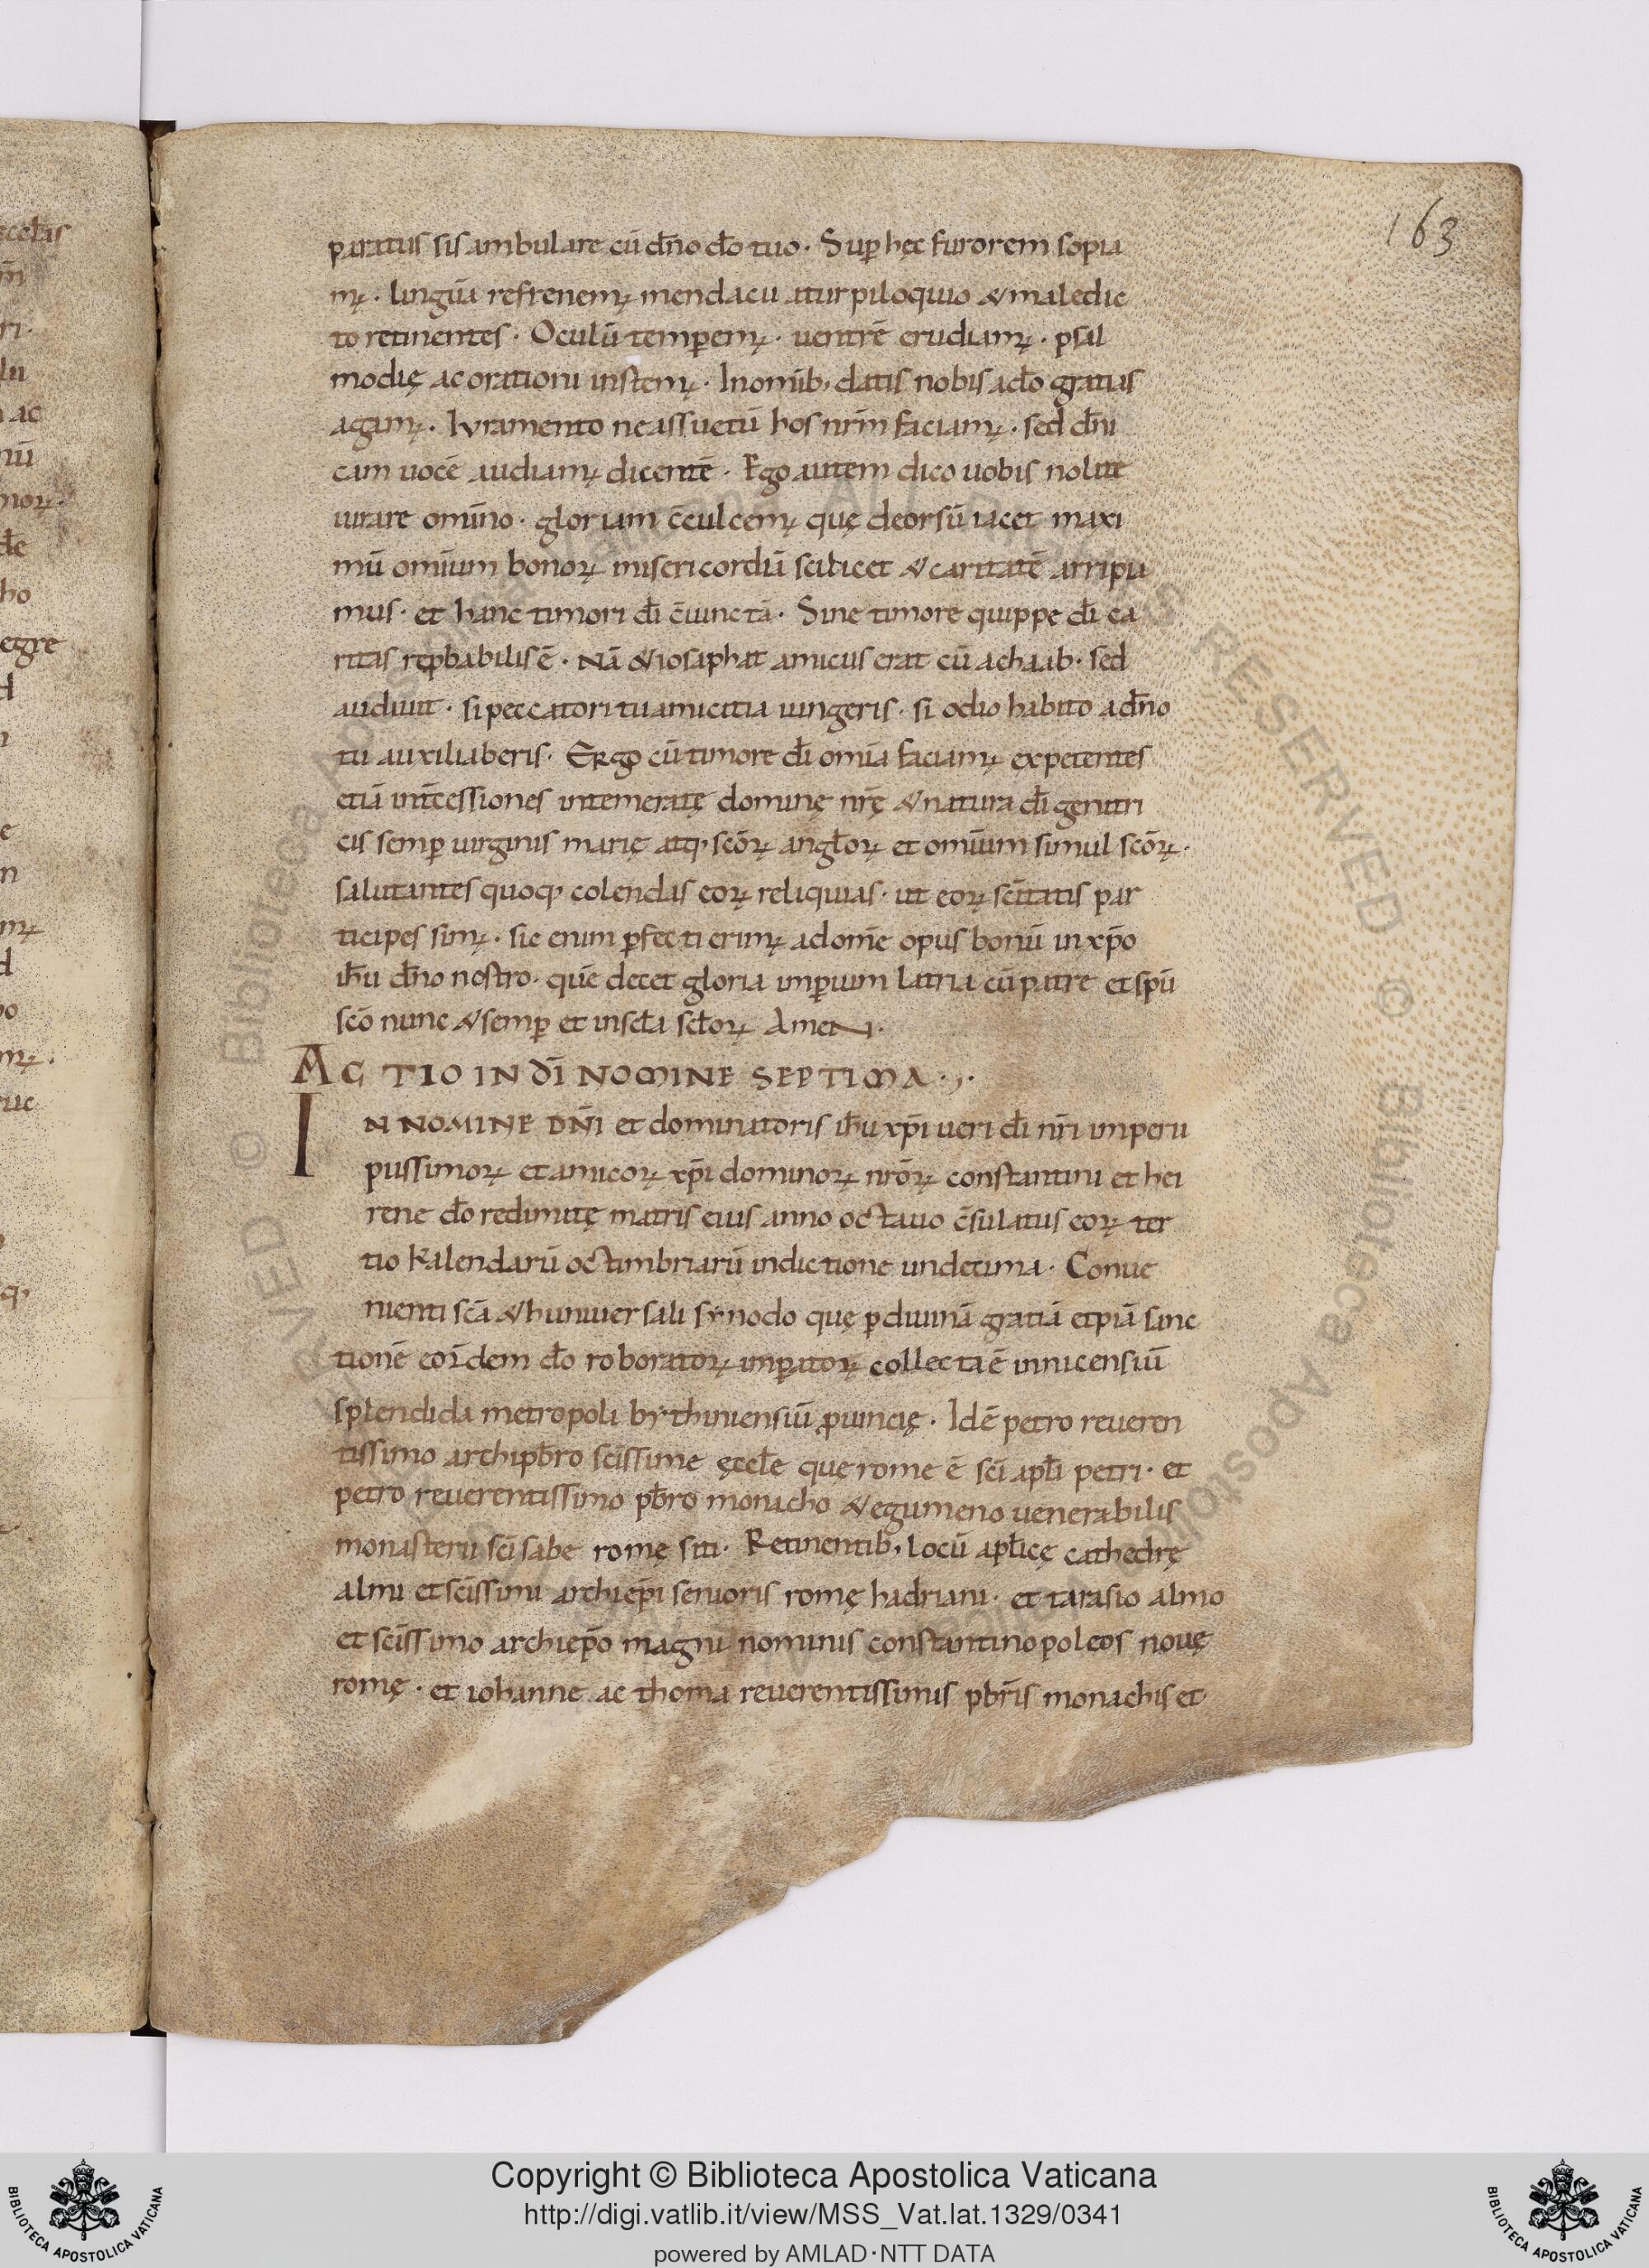 163
paratus sis ambulare cū dn̄o do̅ tuo · Suꝑ hęc furorem sopia
mꝰ · linguā refrenemꝰ mendacii a turpiloquio & maledic
to retinentes · Oculū temꝑemꝰ · uentrē erudiamꝰ · psal
modię ac orationi instemꝰ · In omīb; datis nobis a do̅ gratias
agamꝰ · Iuramento ne assuetū hos nr̄m faciamꝰ · sed dn̄i
cam uocē audiamꝰ dicentē · Ego autem dico uobis nolite
iurare omīno · gloriam c̄culcemꝰ quę deorsū iacet maxi
mū omīum bonoꝝ misericordiā scilicet & caritatē arripia
mus · et hanc timori di̅ c̄iunctā · Sine timore quippe di̅ ca
ritas reꝓbabilis ē · Nā & iosaphat amicus erat cū achaab · sed
audiuit · si peccatori tu amicitia iungeris · si odio habito a dn̄o
tu auxiliaberis · Ergo cū timore di̅ omīa faciamꝰ expetentes
etiā int̄cessiones intemeratę dominę nr̄ę & natura di̅ genitri
cis semꝑ uirginis marię atq; sc̄oꝝ angl̄oꝝ et omīum simul sc̄oꝝ ·
salutantes quoq; colendas eoꝝ reliquias · ut eoꝝ sc̄itatis par
ticipes simꝰ · sic enim ꝑfecti erimꝰ ad omē opus bonū in xp̄o
ih̄u dn̄o nostro · quē decet gloria imꝑium latria cū patre et sp̄u
sc̄o nunc & semꝑ et in scl̄a scl̄oꝝ AmeN ·
ACTIO IN DĪ NOMINE SEPTIMA ·
IN NOMINE DN̄I et dominatoris ih̄u xp̄i ueri di̅ nr̄i imperii
piissimoꝝ et amicoꝝ xp̄i dominoꝝ nr̄oꝝ constantini et hei
rene do̅ redimitę matris eius anno octauo c̄sulatus eoꝝ ter
tio kalendarū octimbriarū indictione undecima · Conue
nienti sc̄a & huniuersali synodo quę ꝑ diuinā gratiā et piā sanc
tionē eor̄dem do̅ roboratoꝝ imꝑatoꝝ collecta ē in nicensiū
splendida metropoli bythiniensiū ꝓuincię · Idē petro reueren
tissimo archipb̄ro sc̄issime ęccl̄e quę rome ē sc̄i apl̄i petri · et
petro reuerentissimo pb̄ro monacho & egumeno uenerabilis
monasterii sc̄i sabe romę siti · Retinentib; locū apl̄icę cathedrę
almi et sc̄issimi archiep̄i senioris romę hadriani · et tarasio almo
et sc̄issimo archiep̄o magni nominis constantinopoleos nouę
romę · et iohanne ac thoma reuerentissimis pb̄ris monachis et
Copyright © Biblioteca Apostolica Vaticana
http://digi.vatlib.it/view/MSS_Vat.lat.1329/0341
powered by AMLAD·NTT DATA
BIBLIOTECA APOSTOLICA VATICANA
BIBLIOTECA APOSTOLICA VATICANA